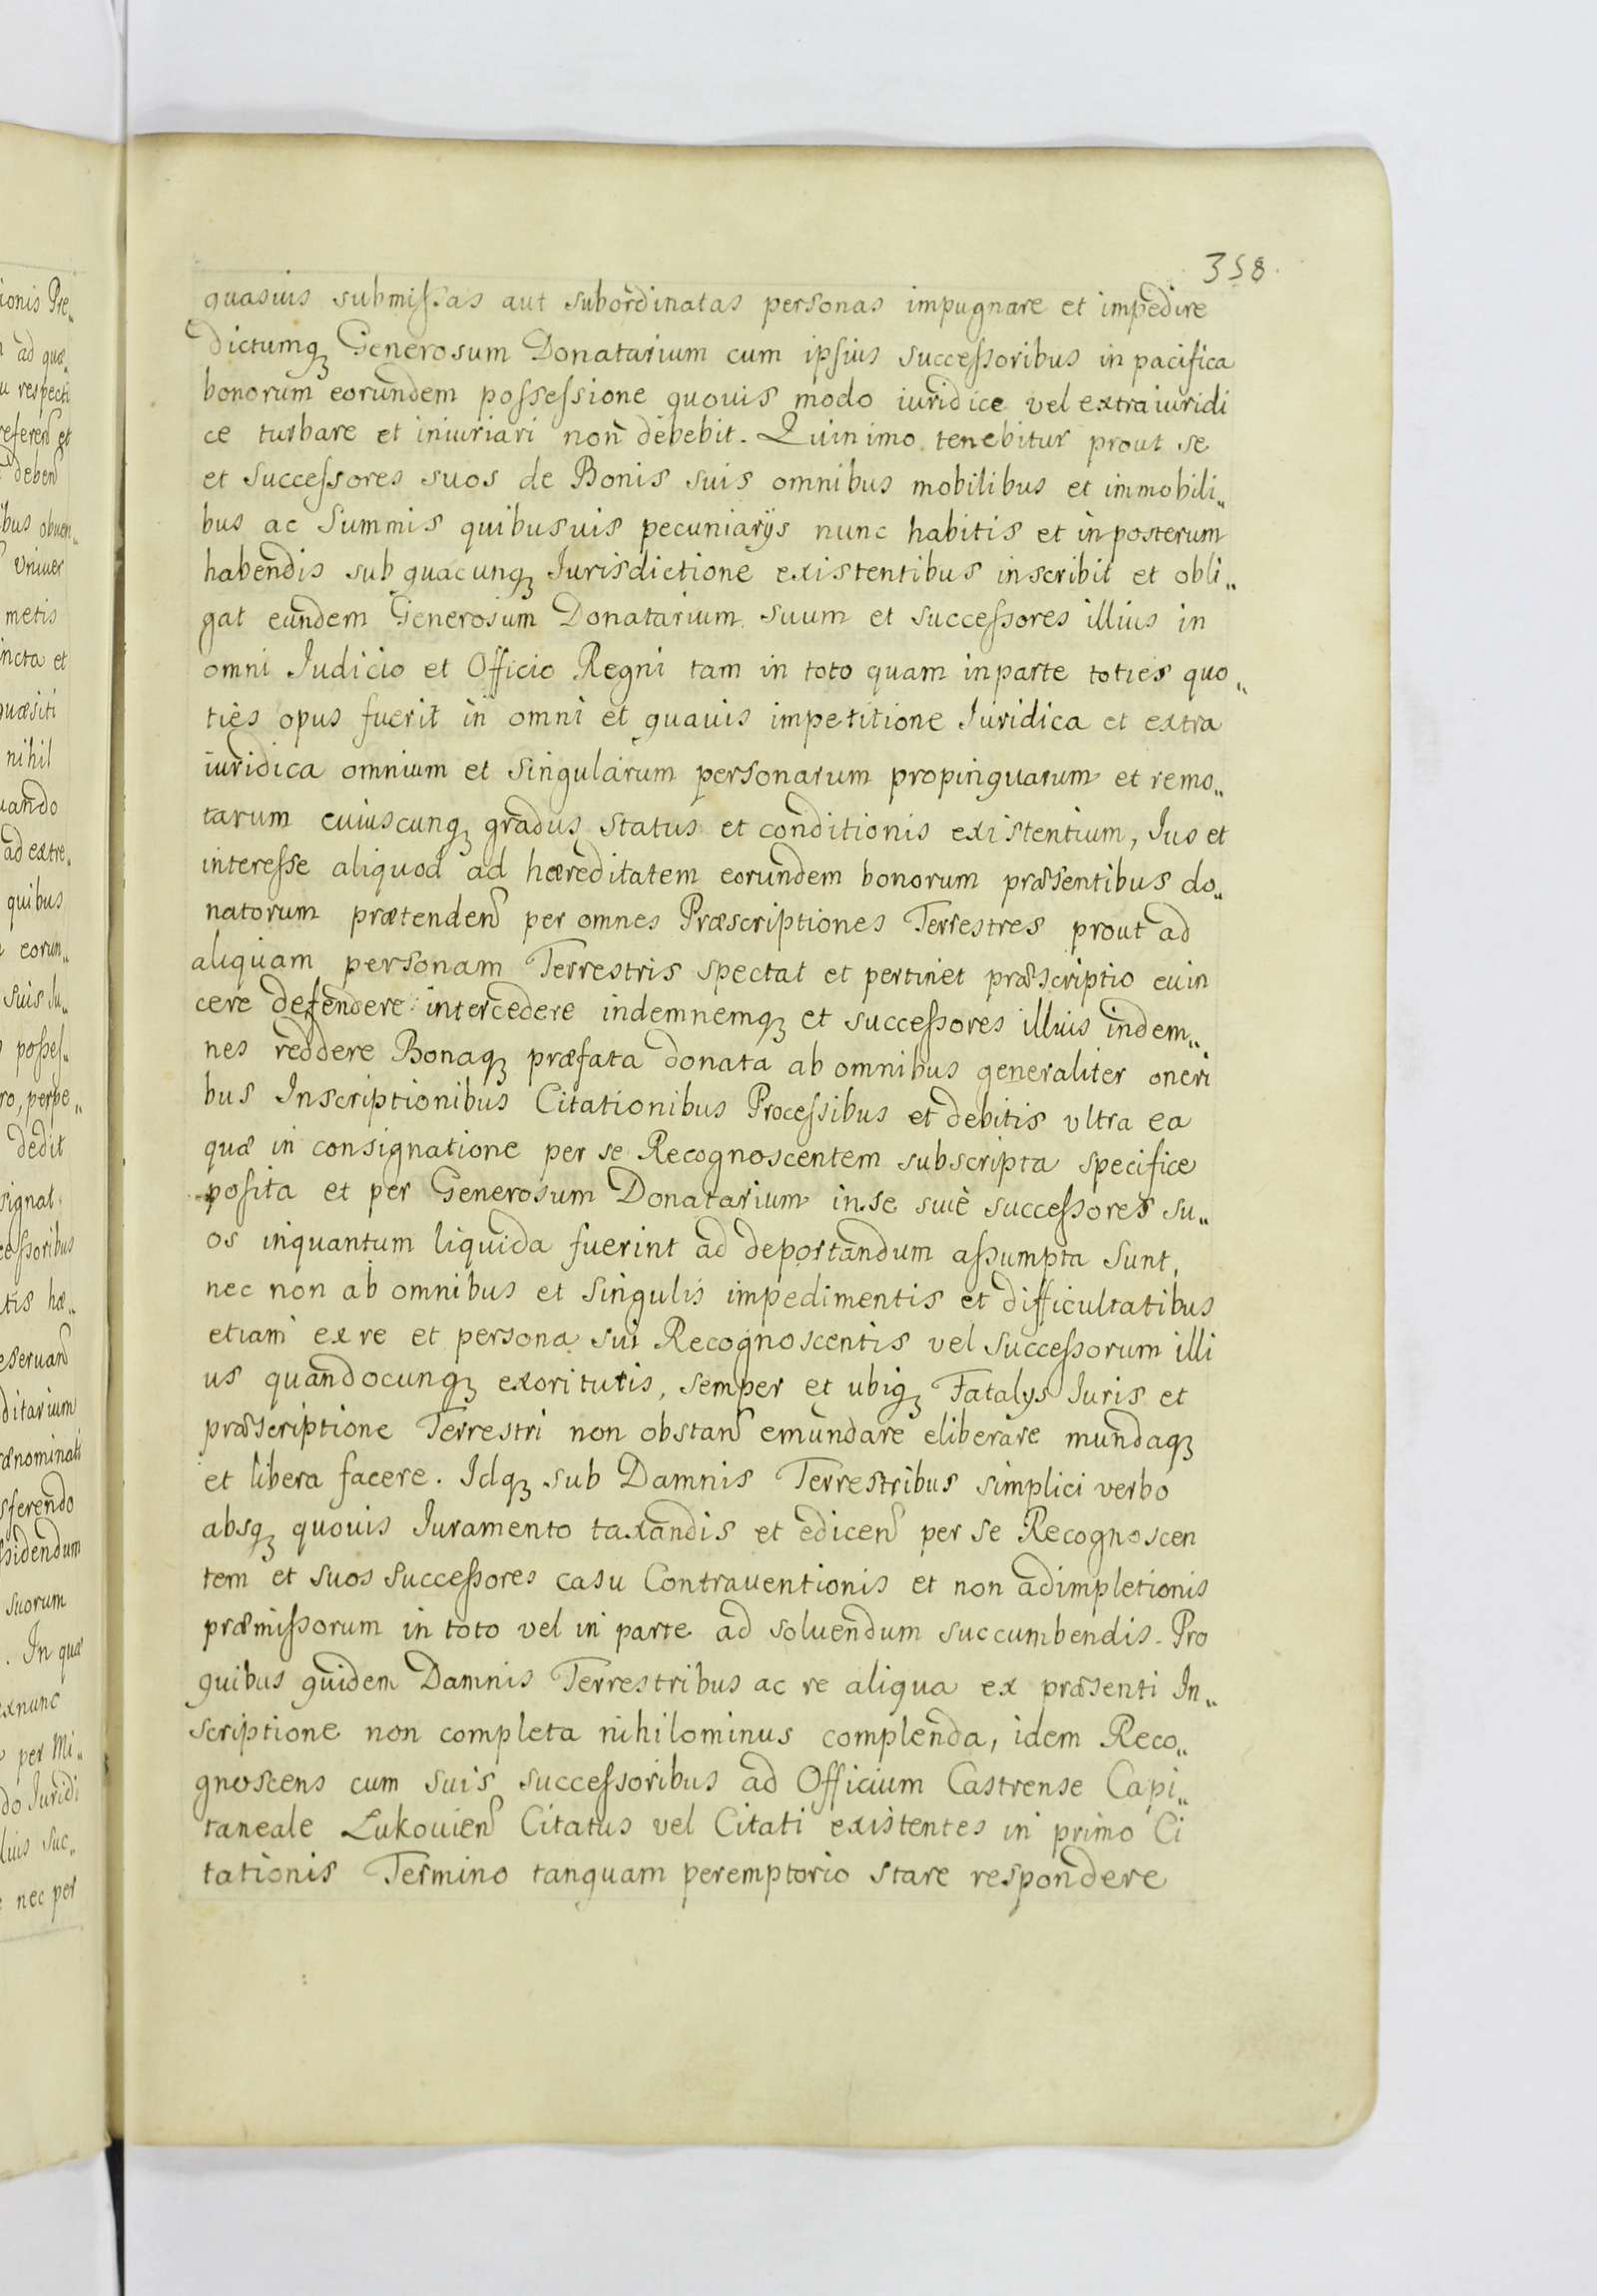 ionis Pre„
ad quæ„
u respecti
referen et
deben
ibus obuen„
vniuer
metis
incta et
quæsiti
nihil
uando
ad extre„
quibus
eorun„
suis Su„
posses„
ro, perpe„
dedit
signat
cessoribus
tis hæ„
eseruan
ditarium
rænominati
sferendo
ssidendum
suorum
. In quæ
exnunc
per Mi„
do Iuridi
llius suc„
nec per
358.
quasuis submissas aut subordinatas personas impugnare et impedire
dictumqꝫ Generosum Donatarium cum ipsius successoribus in pacifica
bonorum eorundem possessione quouis modo iuridice vel extraiuridi
ce turbare et iniuriari non debebit. Quinimo tenebitur prout se
et successores suos de Bonis suis omnibus mobilibus et immobili„
bus ac Summis quibusuis pecuniarijs nunc habitis et inposterum
habendis sub quacunqꝫ Iurisdictione existentibus inscribit et obli„
gat eundem Generosum Donatarium suum et successores illius in
omni Iudicio et Officio Regni tam in toto quam inparte toties quo„
ties opus fuerit in omni et quauis impetitione Iuridica et extra
iuridica omnium et singularum personarum propinquarum et remo„
tarum cuiuscunqꝫ gradus status et conditionis existentium, Ius et
interesse aliquod ad hæreditatem eorundem bonorum præsentibus do„
natorum prætenden per omnes Præscriptiones Terrestres prout ad
aliquam personam Terrestris spectat et pertinet præscriptio euin
cere defendere intercedere indemnemqꝫ et successores illius indem„
nes reddere Bonaqꝫ præfata donata ab omnibus generaliter oneri
bus Inscriptionibus Citationibus Processibus et debitis vltra ea
quæ in consignatione per se Recognoscentem subscripta specifice
posita et per Generosum Donatarium in se suiè successores su„
os inquantum liquida fuerint ad deportandum assumpta sunt,
nec non ab omnibus et singulis impedimentis et difficultatibus
etiam ex re et persona sui Recognoscentis vel successorum illi
us quandocunqꝫ exorituris, semper et ubiqꝫ Fatalys Iuris et
præscriptione Terrestri non obstan emundare eliberare mundaqꝫ
et libera facere. Idqꝫ sub Damnis Terrestribus simplici verbo
absqꝫ quouis Iuramento taxandis et edicen per se Recognoscen
tem et suos successores casu Contrauentionis et non adimpletionis
præmissorum in toto vel in parte ad soluendum succumbendis. Pro
quibus quidem Damnis Terrestribus ac re aliqua ex præsenti In„
scriptione non completa nihilominus complenda, idem Reco„
gnoscens cum suis successoribus ad Officium Castrense Capi„
taneale Lukouien Citatus vel Citati existentes in primo Ci
tationis Termino tanquam peremptorio stare respondere